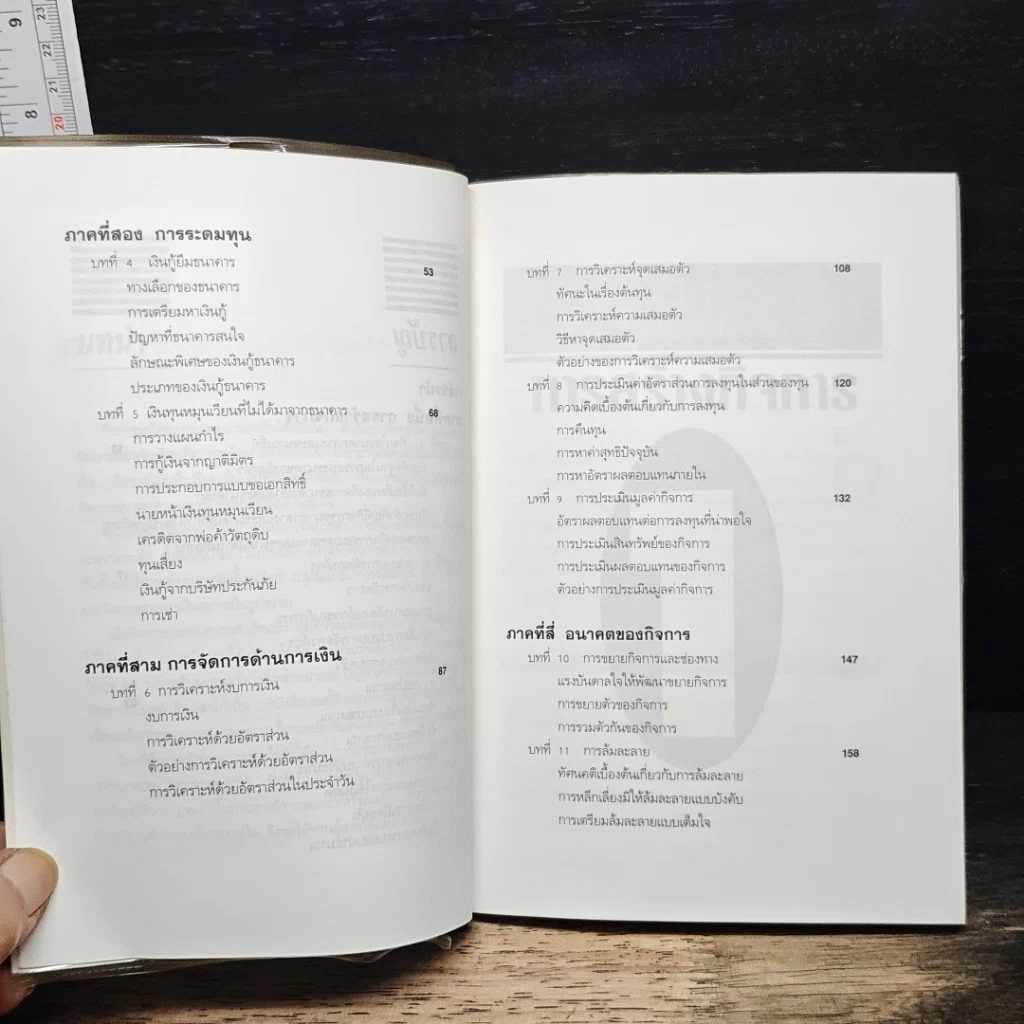 9
23
22
21
8
20
ภาคที่สอง การระดมทุน
บทที่ 4 เงินกู้ยืมธนาคาร 53
ทางเลือกของธนาคาร
การเตรียมหาเงินกู้
ปัญหาที่ธนาคารสนใจ
ลักษณะพิเศษของเงินกู้ธนาคาร
ประเภทของเงินกู้ธนาคาร
บทที่ 5 เงินทุนหมุนเวียนที่ไม่ได้มาจากธนาคาร 68
การวางแผนกำไร
การกู้เงินจากญาติมิตร
การประกอบการแบบขอเอกสิทธิ์
นายหน้าเงินทุนหมุนเวียน
เครดิตจากพ่อค้าวัตถุดิบ
ทุนเสี่ยง
เงินกู้จากบริษัทประกันภัย
การเช่า
ภาคที่สาม การจัดการด้านการเงิน 87
บทที่ 6 การวิเคราะห์งบการเงิน
งบการเงิน
การวิเคราะห์ด้วยอัตราส่วน
ตัวอย่างการวิเคราะห์ด้วยอัตราส่วน
การวิเคราะห์ด้วยอัตราส่วนในประจำวัน
บทที่ 7 การวิเคราะห์จุดเสมอตัว 108
ทัศนะในเรื่องต้นทุน
การวิเคราะห์ความเสมอตัว
วิธีหาจุดเสมอตัว
ตัวอย่างของการวิเคราะห์ความเสมอตัว
บทที่ 8 การประเมินค่าอัตราส่วนการลงทุนในส่วนของทุน 120
ความคิดเบื้องต้นเกี่ยวกับการลงทุน
การคืนทุน
การหาค่าสุทธิปัจจุบัน
การหาอัตราผลตอบแทนภายใน
บทที่ 9 การประเมินมูลค่ากิจการ 132
อัตราผลตอบแทนต่อการลงทุนที่น่าพอใจ
การประเมินสินทรัพย์ของกิจการ
การประเมินผลตอบแทนของกิจการ
ตัวอย่างการประเมินมูลค่ากิจการ
ภาคที่สี่ อนาคตของกิจการ
บทที่ 10 การขยายกิจการและช่องทาง 147
แรงบันดาลใจให้พัฒนาขยายกิจการ
การขยายตัวของกิจการ
การรวมตัวกันของกิจการ
บทที่ 11 การล้มละลาย 158
ทัศนคติเบื้องต้นเกี่ยวกับการล้มละลาย
การหลีกเลี่ยงมิให้ล้มละลายแบบบังคับ
การเตรียมล้มละลายแบบเต็มใจ